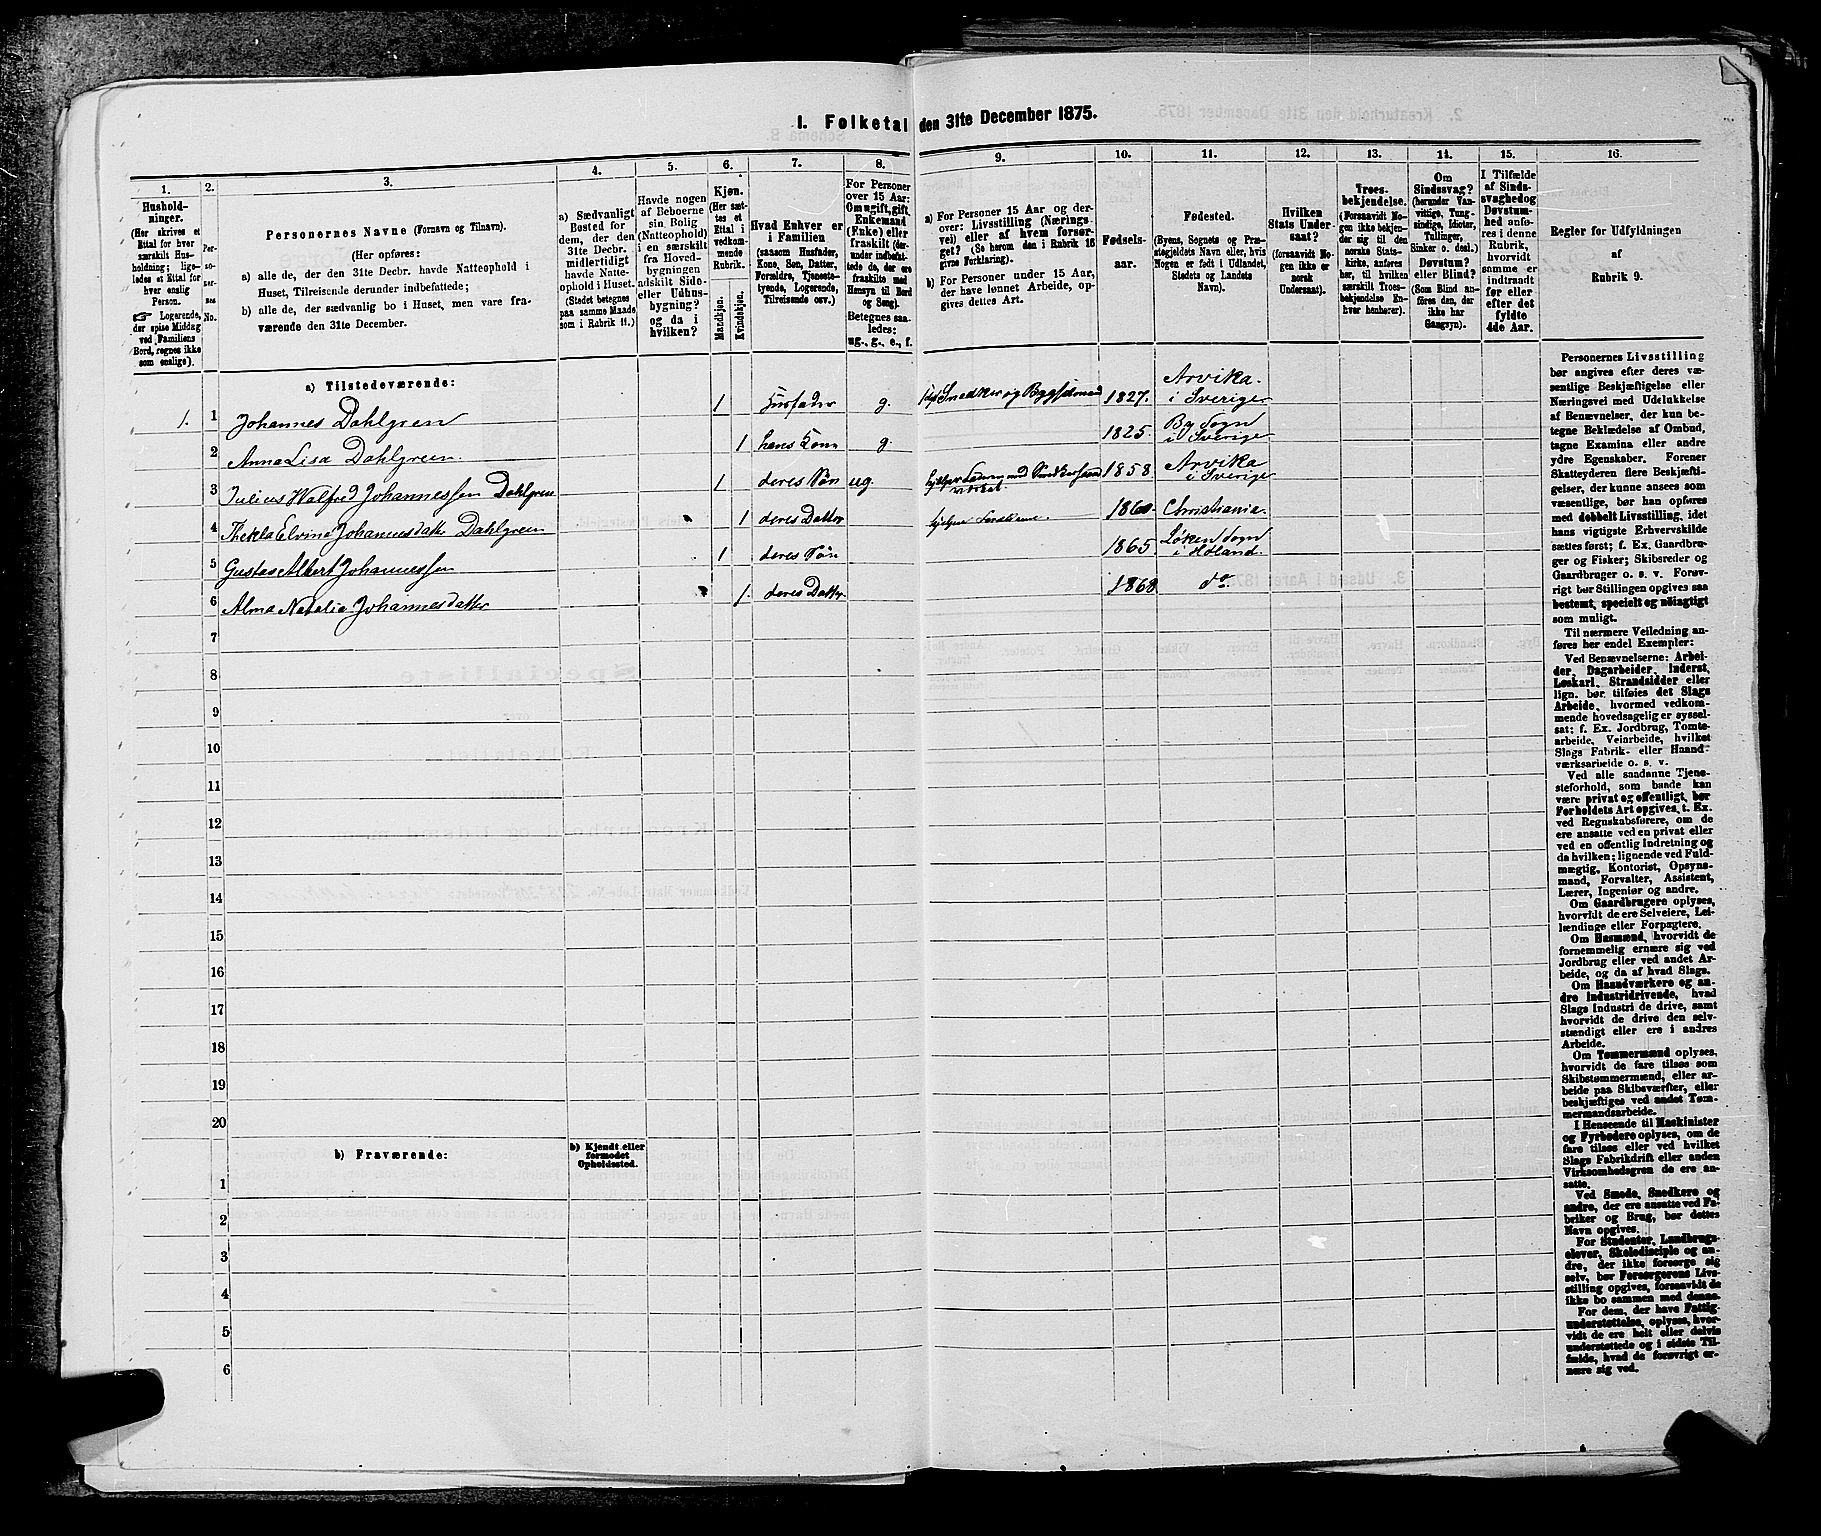 1. Folketal den 31te December 1875.
1. 2. 3. 4. 5. 6. 7. 8. 9. 10. 11. 12. 13. 14. 15. 16.
Hushold-
ninger.
(Her skrives et
Ettal for hver
særskilt Hus-
holdning; lige-
ledes et Ettal for
hver enslig
Person.
☞ Logerende,
der spise Middag
ved Familiens
Bord, regnes ikke
som enslige).
Per-
so-
ner-
nes
No.
Personernes Navne (Fornavn og Tilnavn).
(Her opføres:
a) alle de, der den 31te Decbr. havde Natteophold i
Huset, Tilreisende derunder indbefattede;
b) alle de, der sædvanlig bo i Huset, men vare fra-
værende den 31te December.
a) Sædvanligt
Bosted for
dem, der den
31te Decbr.
midlertidigt
havde Natte-
ophold i Huset.
(Stedet betegnes
paa samme Maade
som i Rubrik 11.)
Havde nogen
af Beboerne
sin Bolig
(Natteophold)
i en særskilt
fra Hoved-
bygningen
adskilt Side-
eller Udhus-
bygning?
og da i
hvilken?
Kjøn.
(Her sæt-
tes et
Ettal i
vedkom-
mende
Rubrik.
Mandkjøn.
Kvindekjøn.
Hvad Enhver er
i Familien
(saasom Husfader,
Kone, Søn, Datter,
Forældre, Tjeneste-
tyende, Logerende,
Tilreisende osv.)
For Personer
over 15 Aar:
Om ugift, gift,
Enkemand
(Enke) eller
fraskilt (der-
under indbefat-
tede de, der ere
fraskilte med
Hensyn til Bord
og Seng).
Betegnes saa-
ledes:
ug., g., e., f.
a) For Personer 15 Aar og der-
over: Livsstilling (Nærings-
vei) eller af hvem forsør-
get? (Se herom den i Rubrik 16
givne Forklaring).
b) For Personer under 15 Aar,
der have lønnet Arbeide, op-
gives dettes Art.
Fødsels-
aar.
Fødested.
(Byens, Sognets og Præ-
stegjeldets Navn eller, hvis
Nogen er født i Udlandet,
Stedets og Landets
Navn).
Hvilken
Stats Under-
saat?
(forsaavidt No-
gen ikke er
norsk
Undersaat).
Troes-
bekjendelse.
(Forsaavidt No-
gen ikke bekjen-
der sig til den
norske Stats-
kirke, anføres
her, til hvilken
særskilt Troes-
bekjendelse En-
hver henhører).
Om
Sindssvag?
(herunder Van-
vittige, Tung-
sindige, Idioter,
Tullinger,
Sinker o. desl.)
Døvstum?
eller Blind?
(Som Blind an-
føres den, der
ikke har
Gangsyn).
I Tilfælde
af Sinds-
svaghed og
Døvstum-
hed anfø-
res i denne
Rubrik,
hvorvidt
samme er
indtraadt
før eller
efter det
fyldte
4de Aar.
Regler for Udfyldningen
af
Rubrik 9.
a) Tilstedeværende:
1. 1 Johannes Dahlgren 1 Husfader g. Snedker og 1827. Arvika i Sverige
2 Anna Lisa Dahlgreen. 1 hans Kone g. 1825. By Sogn i Sverige
3 Julius Walfred Johannessen Dahlgren 1 deres Søn ug. 1858 Arvika i Sverige
4 Thekla Elvine Johannesdatter Dahlgreen 1 deres Datter 1860. Christiania.
5 Gustav Albert Johannessen 1 deres Søn 1865 Løken Sogn i Høland.
6 Alma Natalia Johannesdatter 1. deres Datter. 1868 do.
7
8
9
10
11
12
13
14
15
16
17
18
19
20
b) Fraværende:
b) Kjendt eller
formodet
Opholdssted.
1
2
3
4
5
6
Personernes Livsstilling
bør angives efter deres væ-
sentlige Beskjæftigelse eller
Næringsvei med Udelukkelse
af Benævnelser, der kun be-
tegne Beklædelse af Ombud,
tagne Examina eller andre
ydre Egenskaber. Forener
Skatteyderen flere Beskjæfti-
gelser, der kunne ansees som
væsentlige, bør han opføres
med dobbelt Livsstilling, idet
hans vigtigste Erhvervskilde
sættes først; f. Ex. Gaardbru-
ger og Fisker; Skibsreder og
Gaardbruger o. s. v. Forøv-
rigt bør Stillingen opgives saa
bestemt, specielt og nøiagtigt
som muligt.
Til nærmere Veiledning an-
føres her endel Exempler:
Ved Benævnelserne: Arbei-
der, Dagarbeider, Inderst,
Løskarl, Strandsidder eller
lign. bør tilføies det Slags
Arbeide, hvormed vedkom-
mende hovedsagelig er syssel-
sat; f. Ex. Jordbrug, Tomte-
arbeide, Veiarbeide, hvilket
Slags Fabrik- eller Haand-
værksarbeide o. s. v.
Ved alle saadanne Tjene-
steforhold, som baade kan
være privat og offentligt, bør
Forholdets Art opgives, t. Ex.
ved Regnskabsførere, om de
ere ansatte ved en privat eller
ved en offentlig Indretning og
da hvilken; lignende ved Fuld-
mægtig, Kontorist, Opsyns-
mand, Forvalter, Assistent,
Lærer, Ingeniør og andre.
Om Gaardbrugere oplyses,
hvorvidt de ere Selveiere, Lei-
lændinge eller Forpagtere.
Om Husmænd, hvorvidt de
fornemmelig ernære sig ved
Jordbrug eller ved andet Ar-
beide, og da af hvad Slags.
Om Haandværkere og an-
dre Industridrivende, hvad
Slags Industri de drive, samt
hvorvidt de drive den selv-
stændigt eller ere i andres
Arbeide.
Om Tømmermænd oplyses,
hvorvidt de fare tilsøs som
Skibstømmermænd, eller ar-
beide paa Skibsværfter, eller
beskjæftiges ved andet Tøm-
mermandsarbeide.
I Henseende til Maskinister
og Fyrbødere oplyses, om de
fare tilsøs eller ved hvilket
Slags Fabrikdrift eller anden
Virksomhedsgren de ere an-
satte.
Ved Smede, Snedkere og
andre, der ere ansatte ved Fa-
briker og Brug, bør dettes
Navn opgives.
For Studenter, Landbrugs-
elever, Skoledisciple og an-
dre, der ikke forsørge sig
selv, bør Forsørgerens Livs-
stilling opgives, forsaavidt de
ikke bo sammen med denne.
For dem, der have Fattig-
understøttelse, oplyses, hvor-
vidt de ere helt eller delvis
understøttede og i sidste Til-
fælde, hvad de forøvrigt er-
nære sig ved.